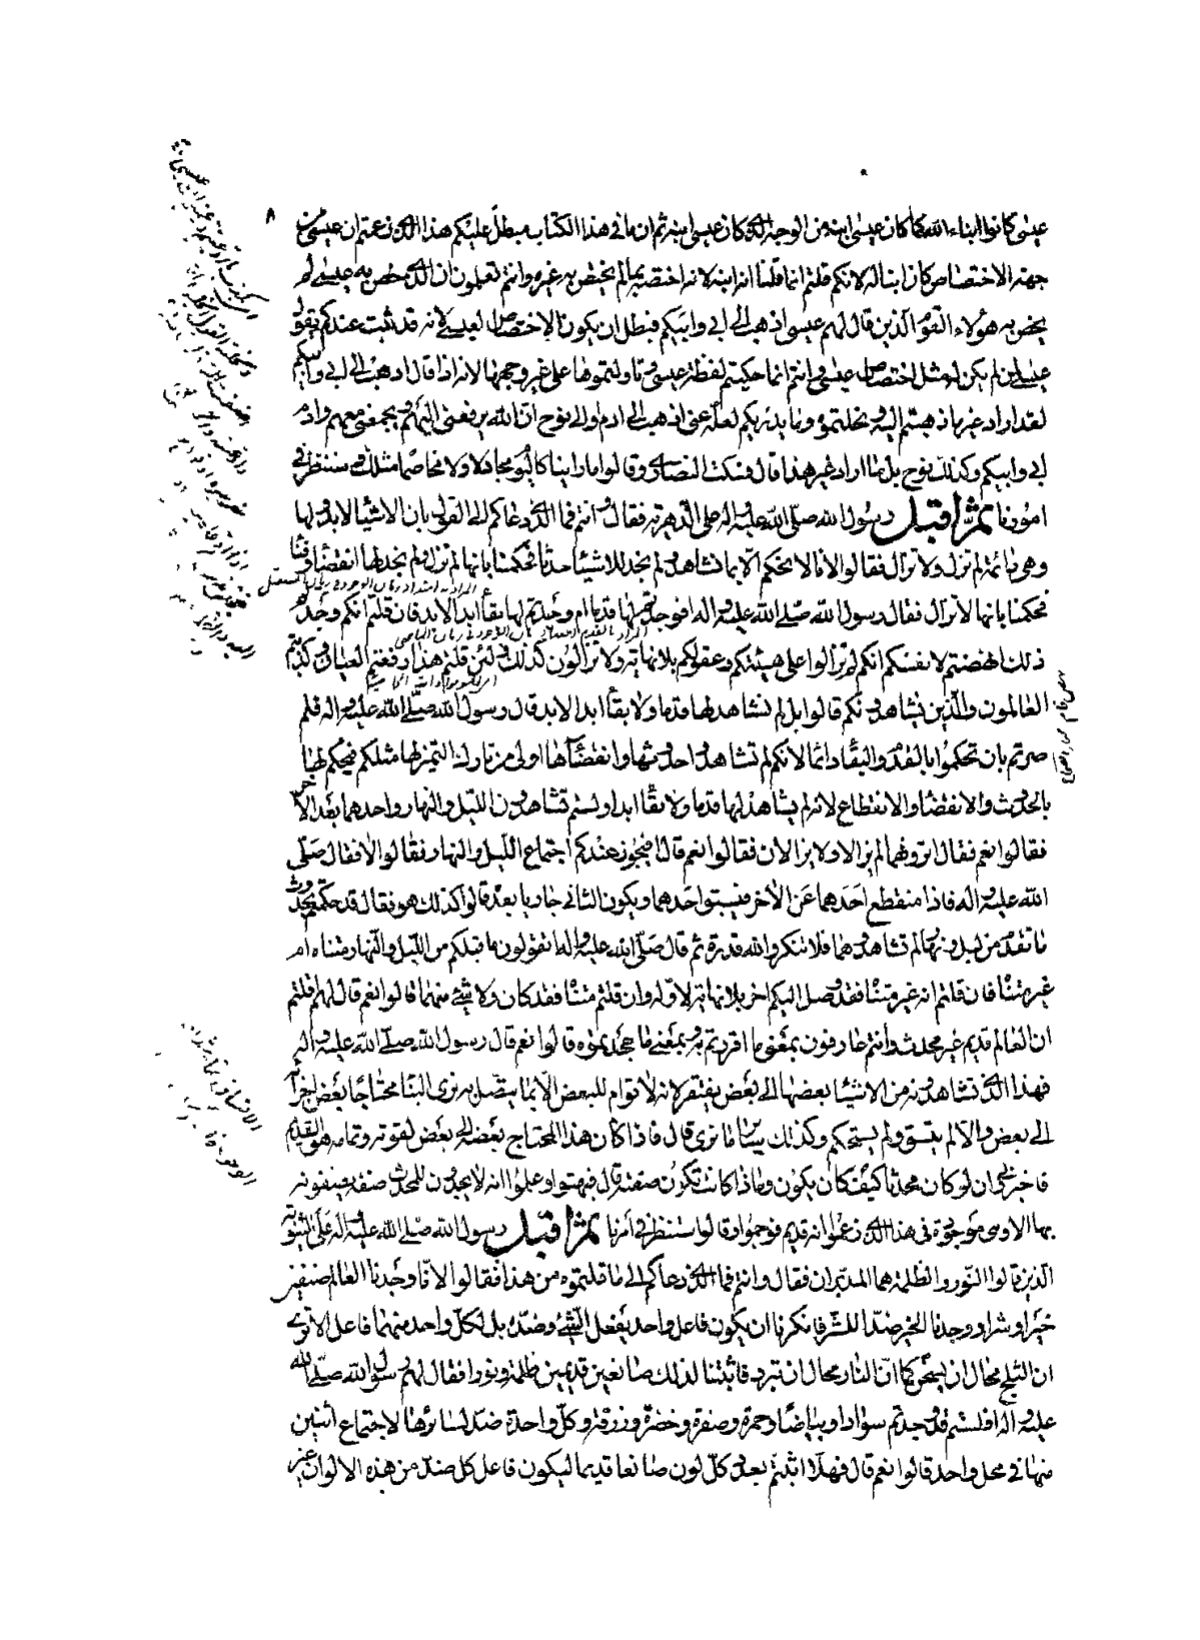 ٨
عيسى كانوا ابناء الله كما كان عيسى ابنه من الوجه الذى كان عيسى ابنه ثم ان ما في هذا الكتاب مبطل عليكم هذا الذى زعمتم ان عيسى من
جهة الاختصاص كان ابنا له لانكم قلتم انما قلنا انه ابنه لانه اختصه بما لم يختص به غيره وانتم تعلمون ان الذى خص به عيسى لم
يخص به هؤلاء القوم الذين قال لهم عيسى اذهب الى ابي وابيكم فبطل ان يكون الاختصاص لعيسى لانه قد ثبت عندكم بقول
عيسى لمن لم يكن له مثل اختصاص عيسى وانتم انما حكيتم لفظة عيسى وتاولتموها على غير وجهها لانه اذا قال اذهب الى ابي وابيكم
لقد اراد غير ما ذهبتم اليه ونحلتموه وما يدريكم لعله عنى اذهب الى ادم والى نوح ان الله يرفعني اليهم ويجمعني معهم وادم
ابي وابيكم وكذلك نوح بل ما اراد غير هذا قال فسكت النصارى وقالوا ما راينا كاليوم مجادلا ولا مخاصما مثلك وسننظر في
امورنا ثم اقبل رسول الله صلى الله عليه واله على الدهرية فقال وانتم فما الذى دعاكم الى القول بان الاشياء لا بدو لها
وهي دائمة لم تزل ولا تزال فقالوا لانا لا نحكم الا بما نشاهد ولم نجد للاشياء حدثا فحكمنا بانها لم تزل ولم نجد لها انقضاء وفناء
فحكمنا بانها لا تزال فقال رسول الله صلى الله عليه واله افوجدتم لها قدما ام وجدتم لها بقاء ابد الابد فان قلتم انكم وجدتم
ذلك انهضتم لانفسكم انكم لم تزالوا على هيئتكم وعقولكم بلا نهاية ولا تزالون كذلك ولئن قلتم هذا دفعتم العيان وكذبكم
العالمون والذين يشاهدونكم قالوا بل لم نشاهد لها قدما ولا بقاء ابد الابد قال رسول الله صلى الله عليه واله فلم
صرتم بان تحكموا بالقدم والبقاء دائما لانكم لم تشاهدوا حدوثها وانقضاءها اولى من تارك التميز لها مثلكم فيحكم لها
بالحدوث والانقضاء والانقطاع لانه لم يشاهد لها قدما ولا بقاء ابدا ولستم تشاهدون الليل والنهار واحدهما بعد الاخر
فقالوا نعم فقال اترونهما لم يزالا ولا يزالان فقالوا نعم قال افيجوز عندكم اجتماع الليل والنهار فقالوا لا فقال صلى
الله عليه واله فاذا منقطع احدهما عن الاخر فيسبق احدهما ويكون الثاني جاريا بعده قالوا كذلك هو فقال قد حكمتم بحدوث
ما تقدم من ليل ونهار لم تشاهدوهما فلا تنكروا لله قدرة ثم قال صلى الله عليه واله اتقولون ما قبلكم من الليل والنهار متناه ام
غير متناه فان قلتم انه غير متناه فقد وصل اليكم اخر بلا نهاية لاوله وان قلتم متناه فقد كان ولا شئ منهما قالوا نعم قال لهم اقلتم
ان العالم قديم غير محدث وانتم عارفون بمعنى ما اقررتم به وبمعنى ما جحدتموه قالوا نعم قال رسول الله صلى الله عليه واله
فهذا الذى نشاهده من الاشياء بعضها الى بعض يفتقر لانه لا قوام للبعض الا بما يتصل به نرى البناء محتاجا بعض اجزائه
الى بعض والا لم يتسق ولم يستحكم وكذلك سائر ما نرى قال فاذا كان هذا المحتاج بعضه الى بعض لقوته وتمامه هو القديم
فاخبروني ان لو كان محدثا كيف كان يكون وماذا كانت تكون صفته قال فبهتوا وعلموا انه لا يجدون للمحدث صفة يصفونه
بها الا وهي موجودة في هذا الذى زعموا انه قديم فوجموا وقالوا سننظر في امرنا ثم اقبل رسول الله صلى الله عليه واله على الثنوية
الذين قالوا النور والظلمة هما المدبران فقال وانتم فما الذى دعاكم الى ما قلتموه من هذا فقالوا لانا وجدنا العالم صنفين
خيرا وشرا ووجدنا الخير ضدا للشر فانكرنا ان يكون فاعل واحد يفعل الشئ وضده بل لكل واحد منهما فاعل الا ترى
ان الثلج محال ان يسخن كما ان النار محال ان تبرد فاثبتنا لذلك صانعين قديمين ظلمة ونورا فقال لهم رسول الله صلى الله
عليه واله افلستم قد وجدتم سوادا وبياضا وحمرة وصفرة وخضرة وزرقة وكل واحدة ضد لسائرها لاجتماع اثنين
منها في محل واحد قالوا نعم قال فهلا اثبتم بعدد كل لون صانعا قديما ليكون فاعل كل ضد من هذه الالوان غير